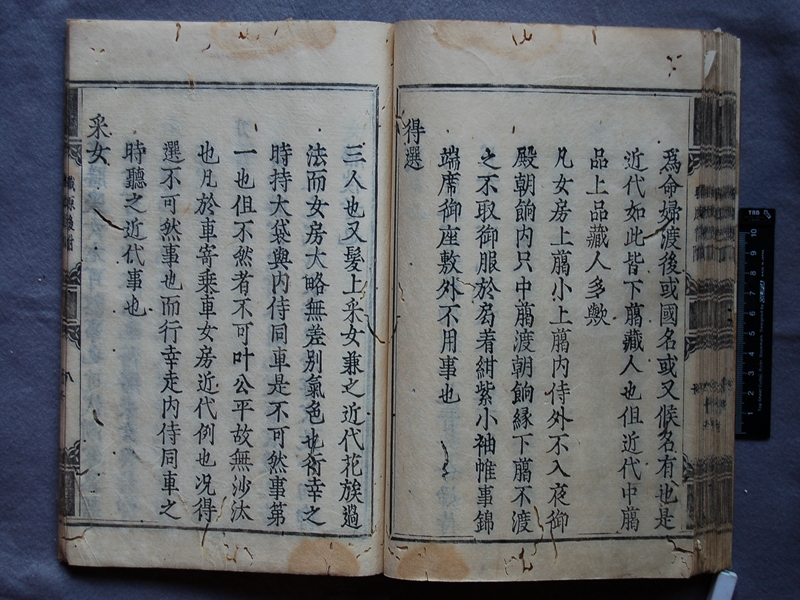 爲命婦渡後或國名或又候名有也是
近代如此皆下﨟藏人也但近代中﨟
品上品藏人多歟
凡女房上﨟小上﨟内侍外不入夜御
殿朝餉内只中﨟渡朝餉縁下﨟不渡
之不取御服於㒵着紺紫小袖帷事錦
端席御座敷外不用事也
得選
三人也又髪上采女兼之近代花族過
法而女房大略無差別氣色也行幸之
時持大袋與内侍同車是不可然事第
一也但不然者不可叶公平故無沙汰
也凡於車寄乗車女房近代例也况得
選不可然事也而行幸走内侍同車之
時聽之近代事也
采女
職原後附
八